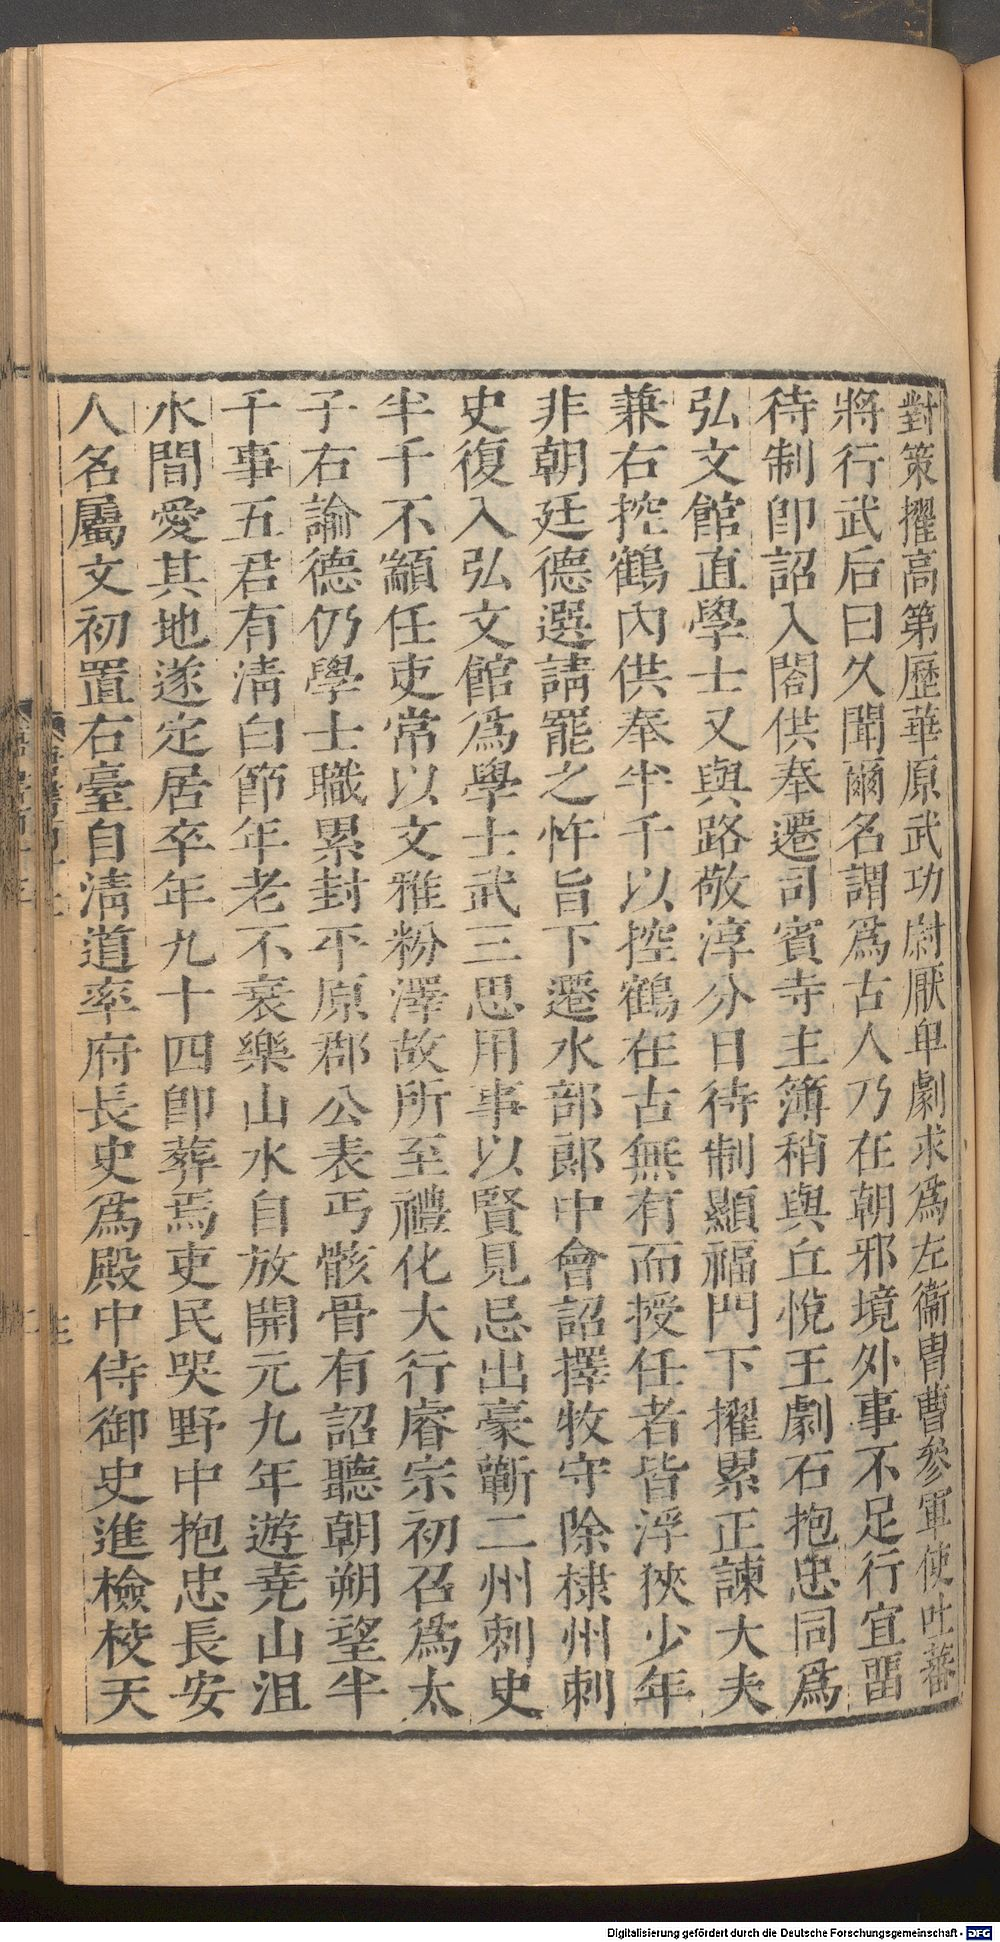 對策擢高第歷華原武功尉厭卑劇求爲左衞冑曹參軍使吐蕃
將行武后曰久聞爾名謂爲古人乃在朝邪境外事不足行宜畱
待制卽詔入閤供奉遷司賓寺主簿稍與丘悅王劇石抱忠同爲
弘文館直學士又與路敬淳分日待制顯福門下擢累正諫大夫
兼右控鶴內供奉半千以控鶴在古無有而授任者皆浮狹少年
非朝廷德選請罷之忤旨下遷水部郞中會詔擇牧守除棣州刺
史復入弘文館爲學士武三思用事以賢見忌出豪蘄二州刺史
半千不顓任吏常以文雅粉澤故所至禮化大行睿宗初召爲太
子右諭德仍學士職累封平原郡公表丐骸骨有詔聽朝朔望半
千事五君有淸白節年老不衰樂山水自放開元九年遊堯山沮
水間愛其地遂定居卒年九十四卽葬焉吏民哭野中抱忠長安
人名屬文初置右臺自淸道率府長史爲殿中侍御史進檢校天
Digitalisierung gefördert durch die Deutsche Forschungsgemeinschaft - DFG